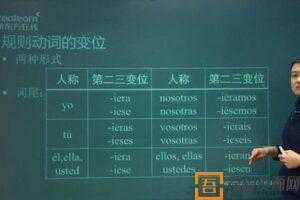 koolearn
新东方在线
规则动词的变位
• 两种形式
• 词尾：
人称 第二三变位 人称 第二三变位
yo -iera -iese nosotros nosotras -iéramos -iésemos
tú -ieras -ieses vosotros vosottas -ierais -ieseis
él,ella, usted -iera -iese ellos, ellas ustedes -ieran -iesen